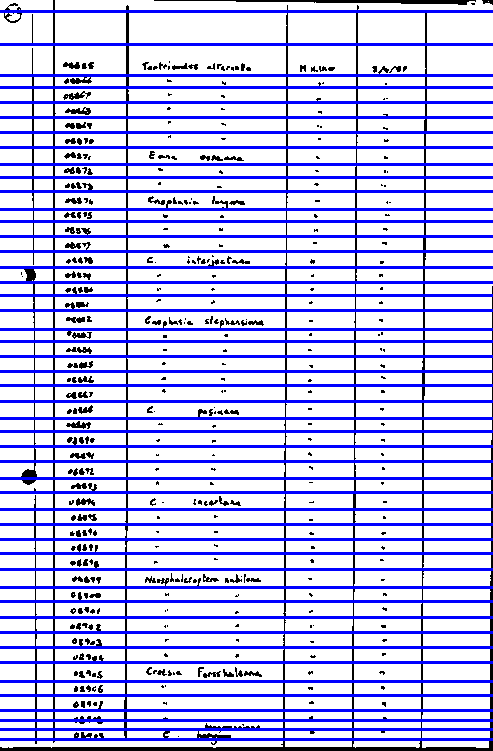 08865 Tortricodes alternella
08866 " " " "
08867 " " " "
08868 " " " "
08869 " " " "
08870 " " " "
08871 Eana osseana " "
08872 " " " "
08873 " " " "
08874 Cnephasia longana " "
08875 " " " "
08876 " " " "
08877 " " " "
08878 C. interjectana " "
08879 " " " "
08880 " " " "
08881 " " " "
08882 Cnephasia stephensiana " "
08883 " " " "
08884 " " " "
08885 " " " "
08886 " " " "
08887 " " " "
08888 C. pasiuana " "
08889 " " " "
08890 " " " "
08891 " " " "
08892 " " " "
08893 " " " "
08894 C. incertana " "
08895 " " " "
08896 " " " "
08897 " " " "
08898 " " " "
08899 Neosphaleroptera nubilana " "
08900 " " " "
08901 " " " "
08902 " " " "
08903 " " " "
08904 " " " "
08905 Croesia Forsskaleana " "
08906 " " " "
08907 " " " "
08908 " " " "
08909 C. " "